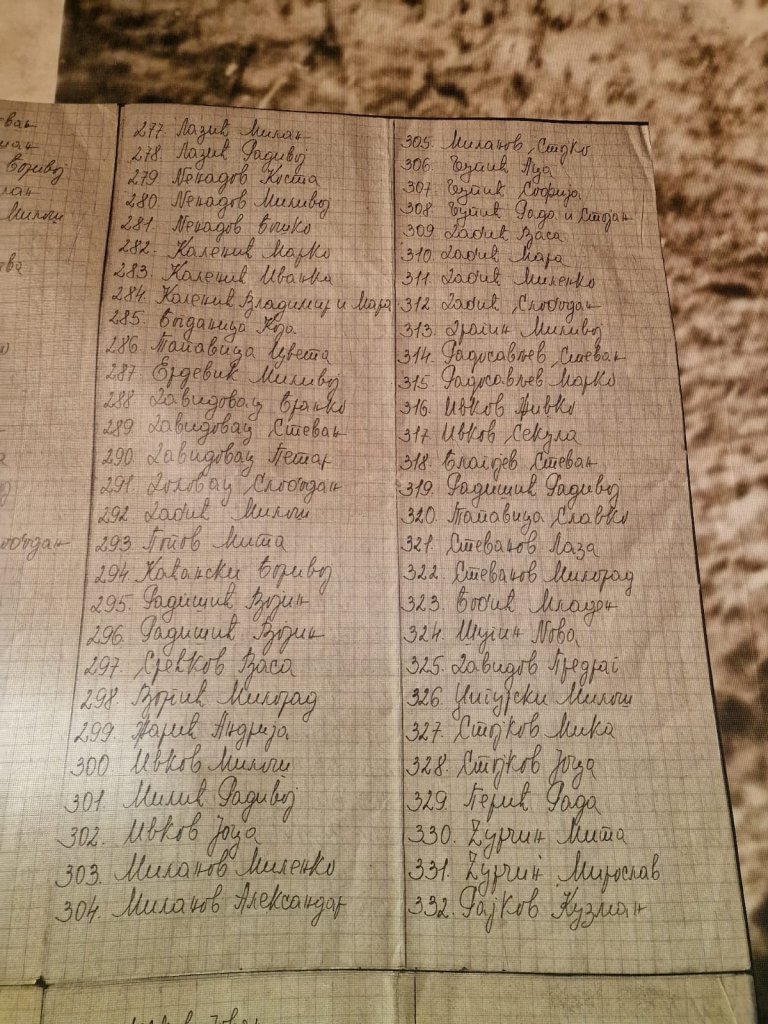 277. Лазић Милан
278. Лазић Радивој
279 Ненадов Коста
280. Ненадов Миливој
281. Ненадов Бошко
282. Каленић Марко
283. Каленић Иванка
284. Каленић Владимир и Мара
285. Богданица Која
286 Папавица Цвета
287 Ердевик Миливој
288 Давидовац Бранко
289 Давидовац Стеван
290 Давидовац Петар
291. Доловац Слободан
292 Дабић Милош
293 Попов Мита
294. Кавански Боривој
295. Радишић Војин
296. Радишић Војин
297. Сревков Васа
298. Војнић Милорад
299. Јарић Андрија
300 Ивков Милош
301. Милић Радивој
302. Ивков Јоца
303. Миланов Миленко
304. Миланов Александар
305. Миланов Стојко
306. Ђупић Аца
307. Ђупић Софија
308 Ђупић Рада и Стојан
309 Дабић Васа
310. Дабић Мара
311. Дабић Миленко
312 Дабић Слободан
313. Драгин Миливој
314. Радосављев Стеван
315. Радосављев Марко
316. Ивков Живко
317 Ивков Секула
318. Благојев Стеван
319. Радишић Радивој
320. Папавица Славко
321. Стеванов Лаза
322. Стеванов Милорад
323. Бобић Младен
324. Шугин Нова
325. Давидов Предраг
326. Уигурски Милош
327. Стојков Мика
328. Стојков Јоца
329. Перић Рада
330. Ζурчин Мита
331. Ζурчин Мирослав
332. Рајков Кузман
Боривој
Милош